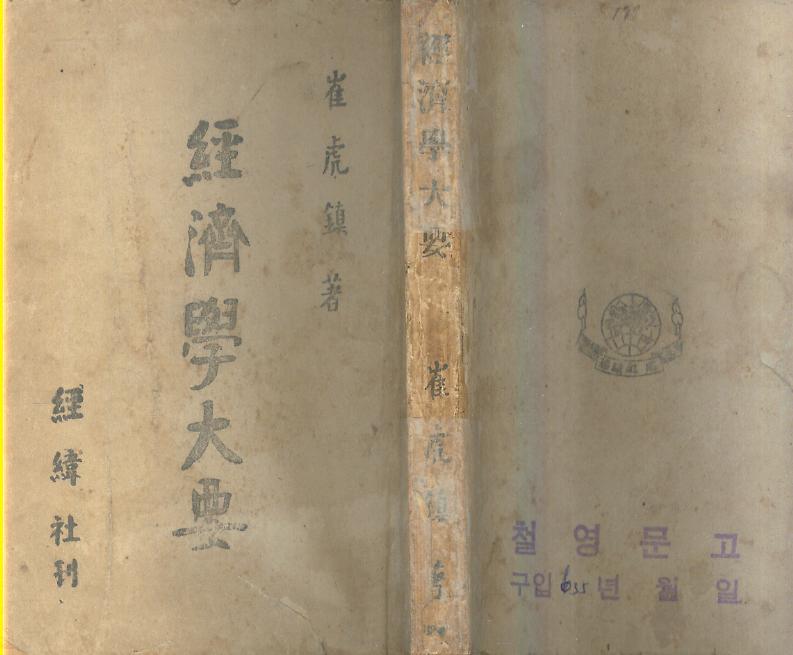 崔虎鎭 著
經濟學大要
經緯社刊
經濟學大要 崔虎鎭 著
철영문고
구입 년 월 일